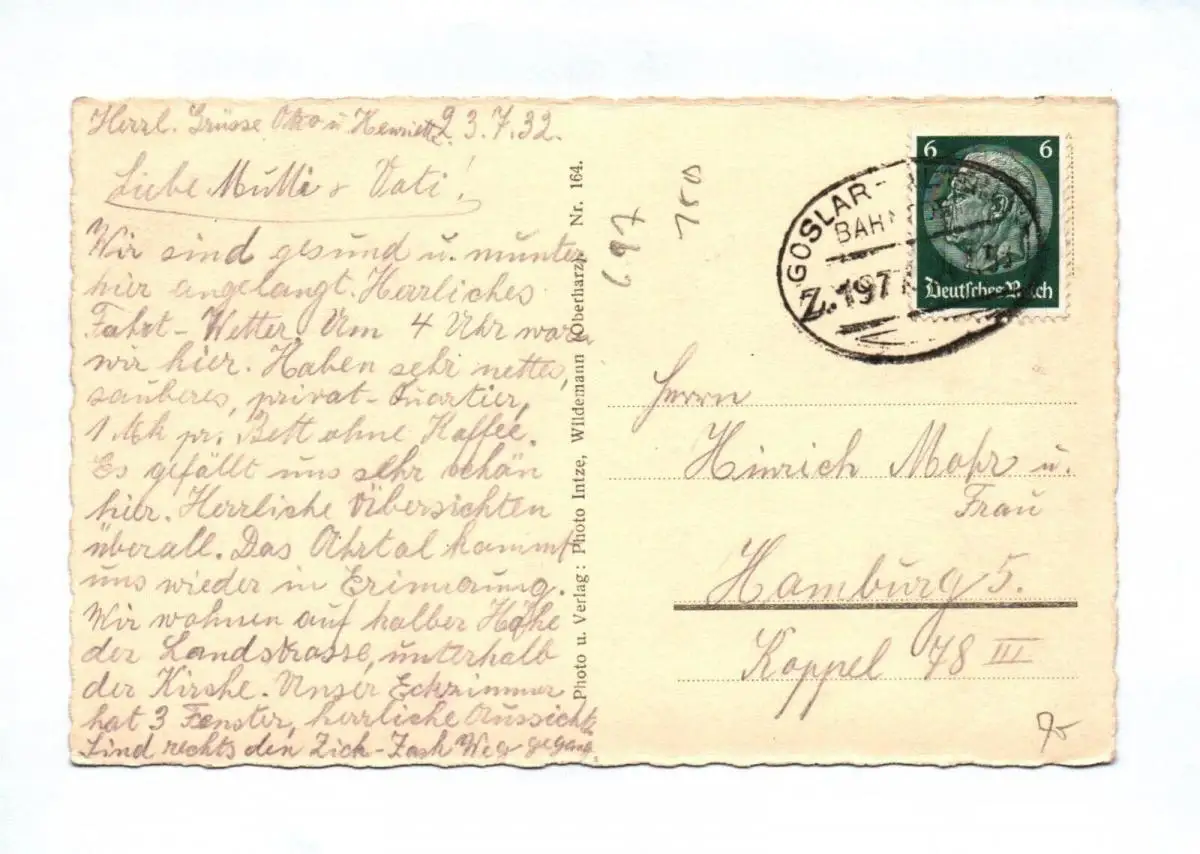 Herzl. Grüsse Otto u Henriette. 23.7.32.
Liebe Mutti & Vati!
Wir sind gesund u. munter
hier angelangt. Herrliches
Fahrt-Wetter. Um 4 Uhr waren
wir hier. Haben sehr nettes,
sauberes, privat-Quartier,
1 Mk pr. Bett ohne Kaffee.
Es gefällt uns sehr schön
hier. Herrliche Übersichten
überall. Das Ahrtal kommt
uns wieder in Erinnerung.
Wir wohnen auf halber Höhe
der Landstrasse, unterhalb
der Kirche. Unser Eckzimmer
hat 3 Fenster, herrliche Aussicht.
Sind rechts den Zick-Zack Weg gegang.
Photo u. Verlag: Photo Intze, Wildemann (Oberharz). Nr. 164.
697
150
GOSLAR-
BAHN
Z.197
6 6
Deutsches Reich
Herrn
Hinrich Mohr u.
Frau
Hamburg 5.
Koppel 78 III
7-